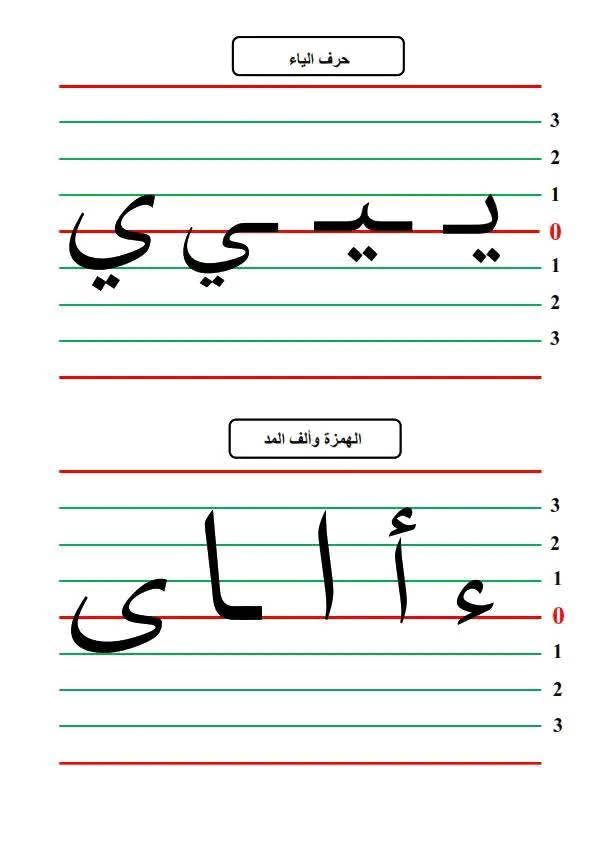 حرف الياء
3
2
1
يـ ـيـ ـي ي 0
1
2
3
الهمزة وألف المد
3
2
1
ء أ ا ـا ى 0
1
2
3